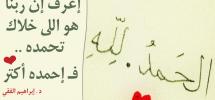 إعرف إن ربنا
هو اللى خلاك
تحمده ..
فـ إحمده أكتر
د . إبراهيم الفقي
الحَمدُ لِلّهِ